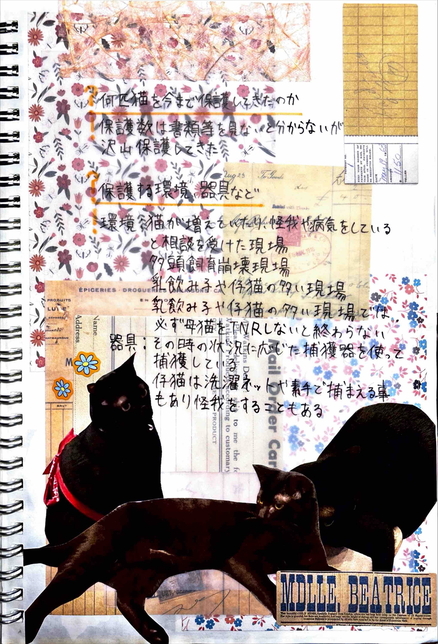 何匹猫を今まで保護してきたのか
保護数は書類等を見ないと分からないが
沢山保護してきた
保護する環境、器具など
環境:猫が増えていたり、怪我や病気をしている
と相談を受けた現場
多頭飼育崩壊現場
乳飲み子や仔猫の多い現場
乳飲み子や仔猫の多い現場では、
必ず母猫をTNRしないと終わらない
器具:その時の状況に応じた捕獲器を使って
捕獲している
仔猫は洗濯ネットや素手で捕まえる事
もあり怪我をすることもある
ÉPICERIES - DROGUE
PRODUITS
Name
Mail Order Car
to me the f
ing to customary
PRODUCT
MDLLE, BEATRICE